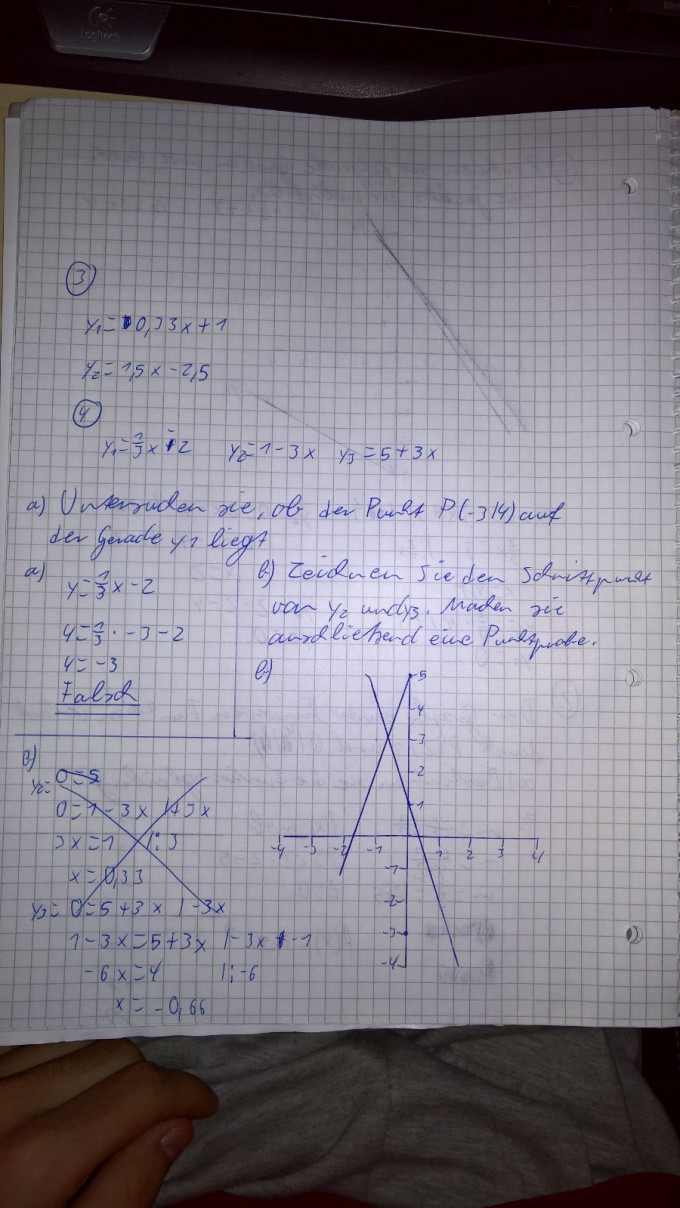 Logitech
③
y₁ = 0,33x + 1
y₂ = 1,5x - 2,5
④
y₁ = 1/3 x - 2 y₂ = 1 - 3x y₃ = 5 + 3x
a) Untersuchen sie, ob der Punkt P(-3|4) auf
der Gerade y1 liegt
a)
y = 1/3 x - 2
4 = 1/3 · -3 - 2
4 = -3
Falsch
b) Zeichnen Sie den Schnittpunkt
von y₂ und y₃. Machen sie
anschließend eine Punktprobe.
b)
5
4
3
2
1
-4 -3 -2 -1 1 2 3 4
-1
-2
-3
-4
b)
y₂= 0 = 5
0 = 1 - 3x |+3x
3x = 1 |:3
x = 0,33
y₃= 0 = 5 + 3x |-3x
1 - 3x = 5 + 3x |-3x -1
-6x = 4 |:-6
x = -0,66